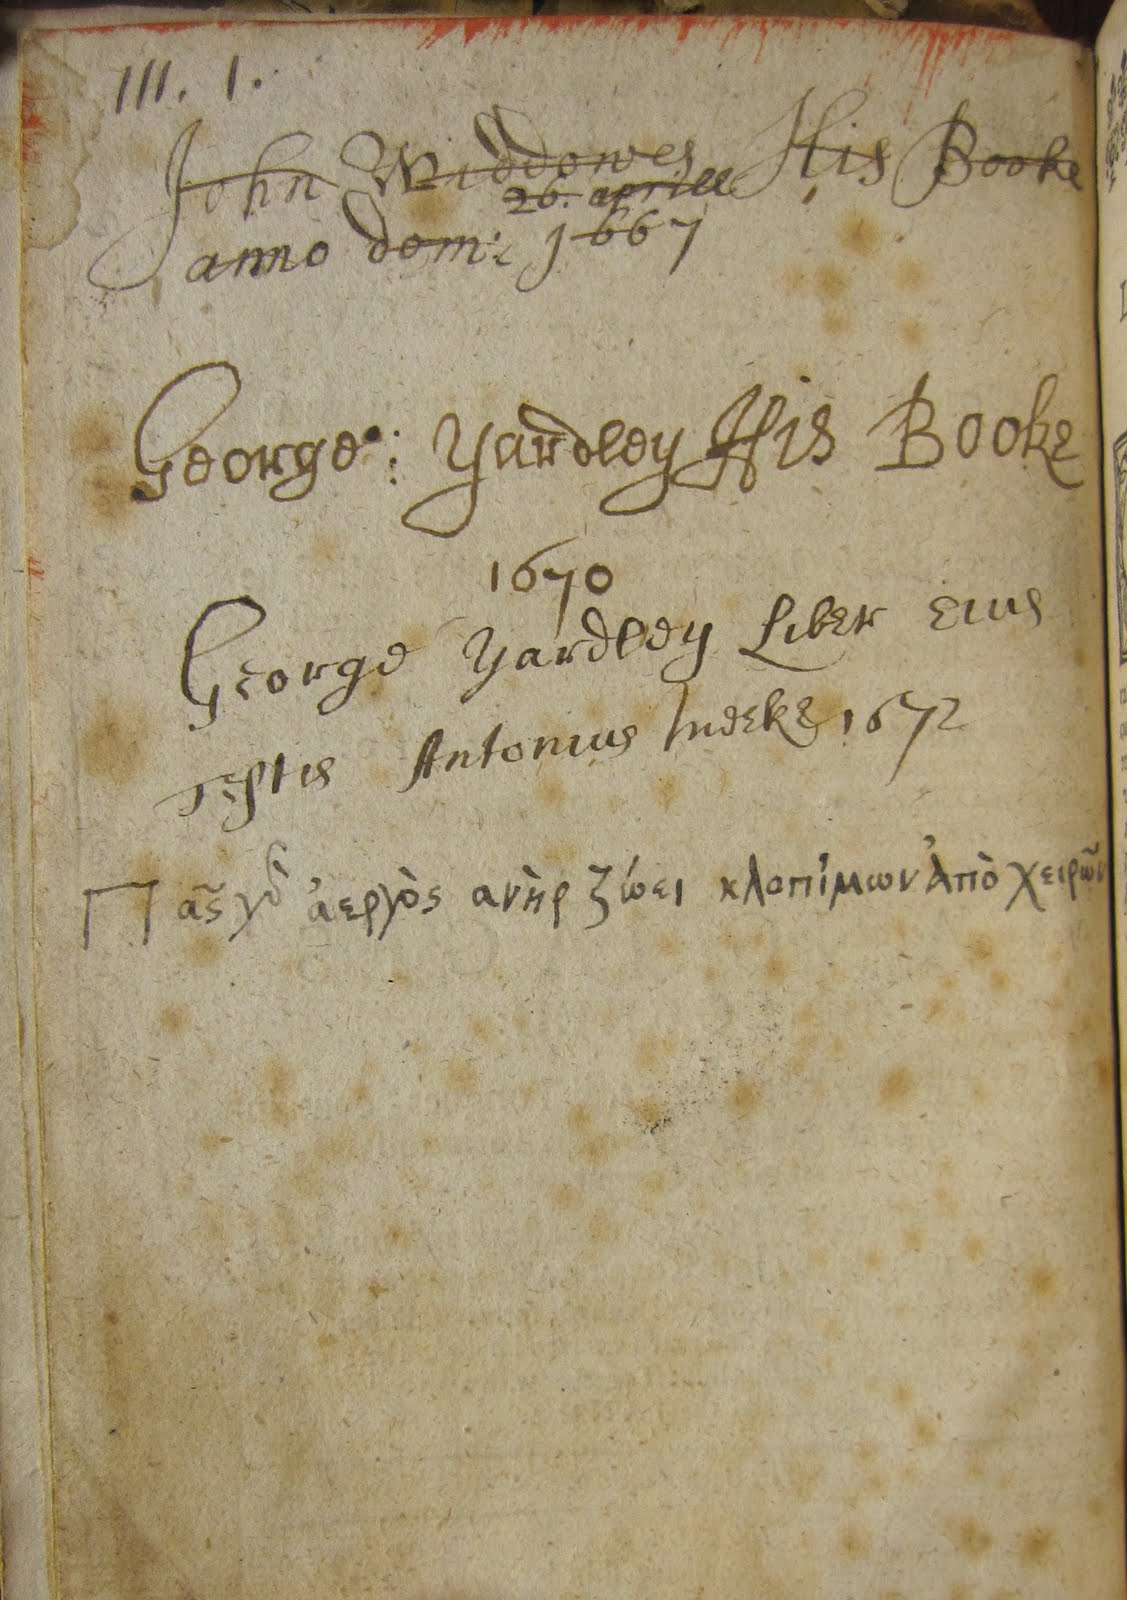 III. 1.
John Widdowes His Booke
26. aprill
anno dom: 1667
George: Yardley His Booke
1670
George Yardley Liber Eius
Testis Antonius 1672
Πᾶς γὸ ἀεργὸς ανὴρ ζώει κλοπίμων ἀπὸ χειρῶν